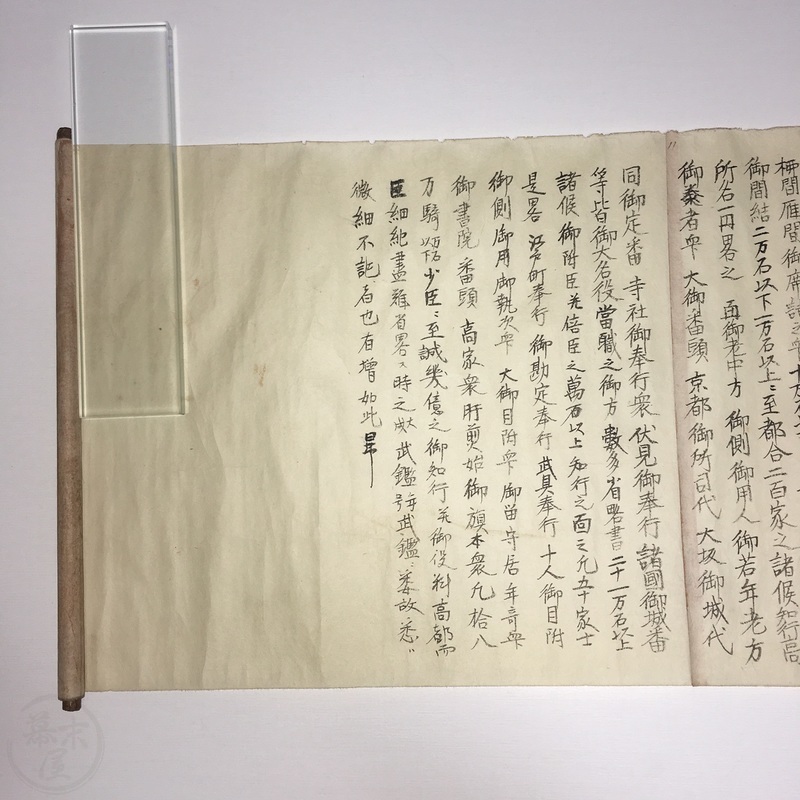 柳間雁間御席詰之衆十万石
御間結二万石以下一万石以上ミ至都合二百家之諸候知行高
所名一円畧之 再御老中方 御側御用人 御若年老方
御奏者衆 大御番頭 京都御所司代 大坂御城代
同御定番 寺社御奉行衆 伏見御奉行 諸国御城番
等皆御大名役當職之御方 數多省略書二十一万石以上
諸候御附臣并倍臣之萬石以上知行之面々凡五十家士
是畧 江戸町奉行 御勘定奉行 武具奉行 十人御目附
御側御用御執次衆 大御目附衆 御留守居年寄衆
御書院番頭 高家衆肝煎始御旗本衆凡拾八
万騎 少臣ミ至誠幾億之御知行并御役料高都而
細紀盡難省畧又時之 武鑑 武鑑ミ委故悉
微細不記者也有增如此 畢